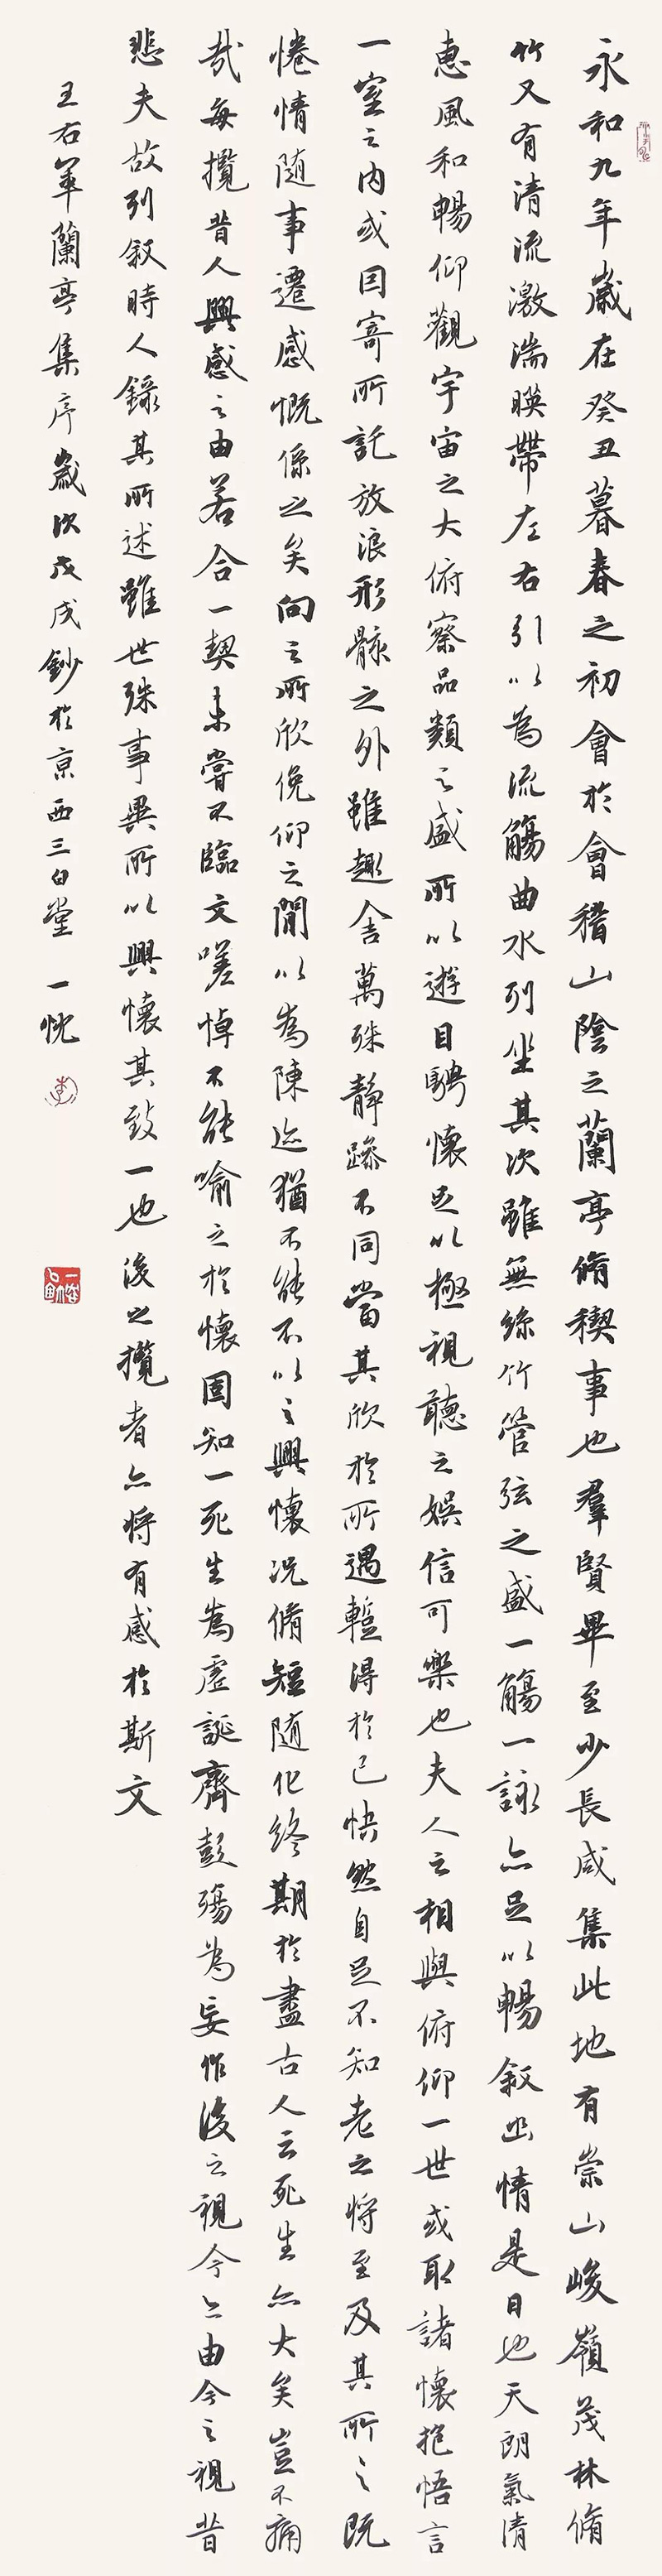 永和九年歲在癸丑暮春之初會於會稽山陰之蘭亭脩稧事也羣賢畢至少長咸集此地有崇山峻嶺茂林脩
竹又有清流激湍暎帶左右引以為流觴曲水列坐其次雖無絲竹管弦之盛一觴一詠亦足以暢敘幽情是日也天朗氣清
惠風和暢仰觀宇宙之大俯察品類之盛所以遊目騁懷足以極視聽之娛信可樂也夫人之相與俯仰一世或取諸懷抱悟言
一室之內或因寄所託放浪形骸之外雖趣舍萬殊靜躁不同當其欣於所遇暫得於己快然自足不知老之將至及其所之既
惓情隨事遷感慨係之矣向之所欣俛仰之間以為陳迹猶不能不以之興懷況脩短隨化終期於盡古人云死生亦大矣豈不痛
哉每攬昔人興感之由若合一契未嘗不臨文嗟悼不能喻之於懷固知一死生為虛誕齊彭殤為妄作後之視今亦由今之視昔
悲夫故列敘時人錄其所述雖世殊事異所以興懷其致一也後之攬者亦將有感於斯文
王右軍蘭亭集序歲次戊戌鈔於京西三白堂 一忱
李